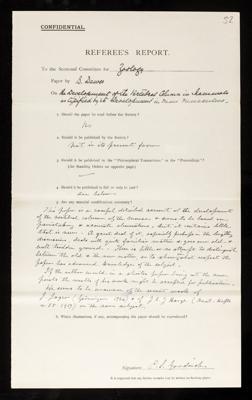 52
CONFIDENTIAL.
REFEREE'S REPORT.
To the Sectional Committee for Zoology
Paper by B. Dawes
On the Development of the Vertebral Column in Mammals
as typified by its Development in Mus Musculus.
1. Should the paper be read before the Society?
No
2. Should it be published by the Society?
Not in its present form
3. Should it be published in the "Philosophical Transactions" or the "Proceedings"?
(See Standing Orders on opposite page)
4. Should it be published in full or only in part?
See below
5. Are any special modifications necessary?
This paper is a careful detailed account of the development
of the vertebral column of the mouse & seems to be based on
painstaking & accurate observations, but it contains little
that is new. A great deal of it, especially perhaps the lengthy
discussion, deals with quite familiar matter & goes over old &
well trodden ground. There is little or no attempt to distinguish
between the old & the new matter, or to show what respect the
paper has advanced knowledge of the subject.
If the author would in a shorter paper bring out the new
points the results of his work might be accepted for publication.
He seems to be unaware of the recent work of
J. J. (Anat. Hefte
) on the same subject.
6. Which illustrations, if any, accompanying the paper should be reproduced?
Signature E. S. Goodrich